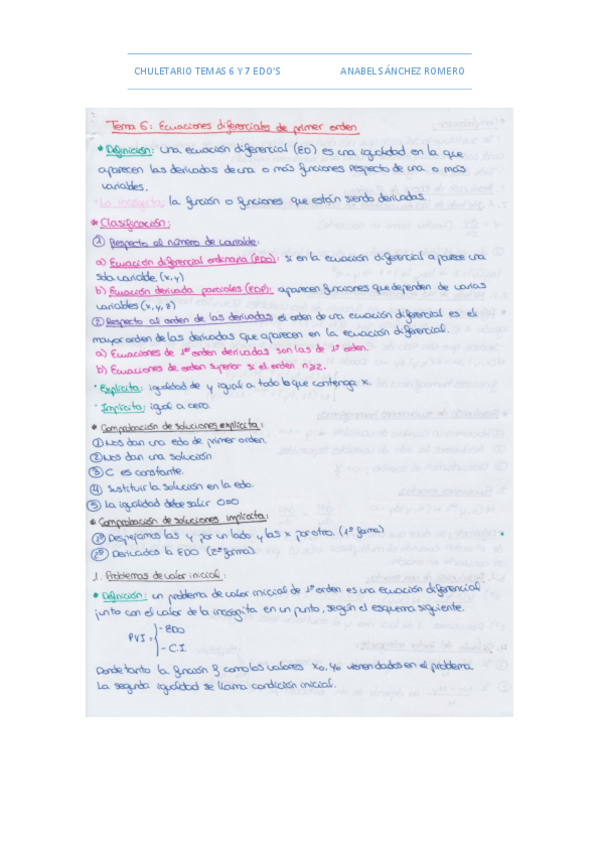 CHULETARIO TEMAS 6 Y 7 EDO'S ANABEL SÁNCHEZ ROMERO
Tema 6: Ecuaciones diferenciales de primer orden
* Definición: una ecuación diferencial (ED) es una igualdad en la que
aparecen las derivadas de una o más funciones respecto de una o más
variables.
- La incógnita: la función o funciones que están siendo derivadas.
* Clasificación:
① Respecto al número de variable:
a) Ecuación diferencial ordinaria (EDO): si en la ecuación diferencial aparece una
sola variable. (x,y)
b) Ecuación derivada parciales (EDP): aparecen funciones que dependen de varias
variables (x, y, z)
② Respecto al orden de las derivadas el orden de una ecuación diferencial es el
mayor orden de las derivadas que aparecen en la ecuación diferencial.
a) Ecuaciones de 1er orden derivadas son las de 1º orden.
b) Ecuaciones de orden superior si el orden n≥2.
· Explícita: igualdad de y igual a todo lo que contenga x.
· Implícita: igual a cero.
* Comprobación de soluciones explícita:
① Nos dan una edo de primer orden.
② Nos dan una solución
③ C es constante.
④ Sustituir la solución en la edo.
⑤ La igualdad debe salir 0=0
* Comprobación de soluciones implícita:
1º Despejamos las y por un lado y las x por otro. (1ª forma)
2º Derivados la EDO (2ª forma)
1. Problemas de valor inicial:
* Definición: un problema de valor inicial de 1º orden es una ecuación diferencial
junto con el valor de la incógnita en un punto, según el esquema siguiente.
PVI = { - EDO
- C.I.
Donde tanto la función f como los valores x0, y0 vienen dados en el problema.
La segunda igualdad se llama condición inicial.